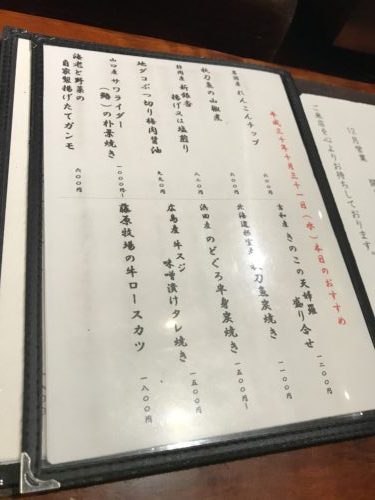 平成三十年十月三十一日（水）本日のおすすめ
岩国産 れんこんチップ
六〇〇円
秋刀魚の山椒煮
六〇〇円
静岡産 新銀杏
揚げ又は塩煎り
八二〇円
地ダコぶつ切り梅肉醤油
九九〇円
山口産 サワライダー
（鰆）の朴葉焼き
一〇〇〇円〜
海老と野菜の
自家製揚げたてガンモ
六〇〇円
きのこの天婦羅
盛り合せ
一二〇〇円
刀魚炭焼き
一一〇〇円
浜田産 のどぐろ半身炭焼き
一五〇〇円〜
広島産 牛スジ
味噌漬けタレ焼き
一五〇〇円
藤原牧場の牛ロースカツ
一八〇〇円
12月営業
ご来店を心よりお待ちしております。